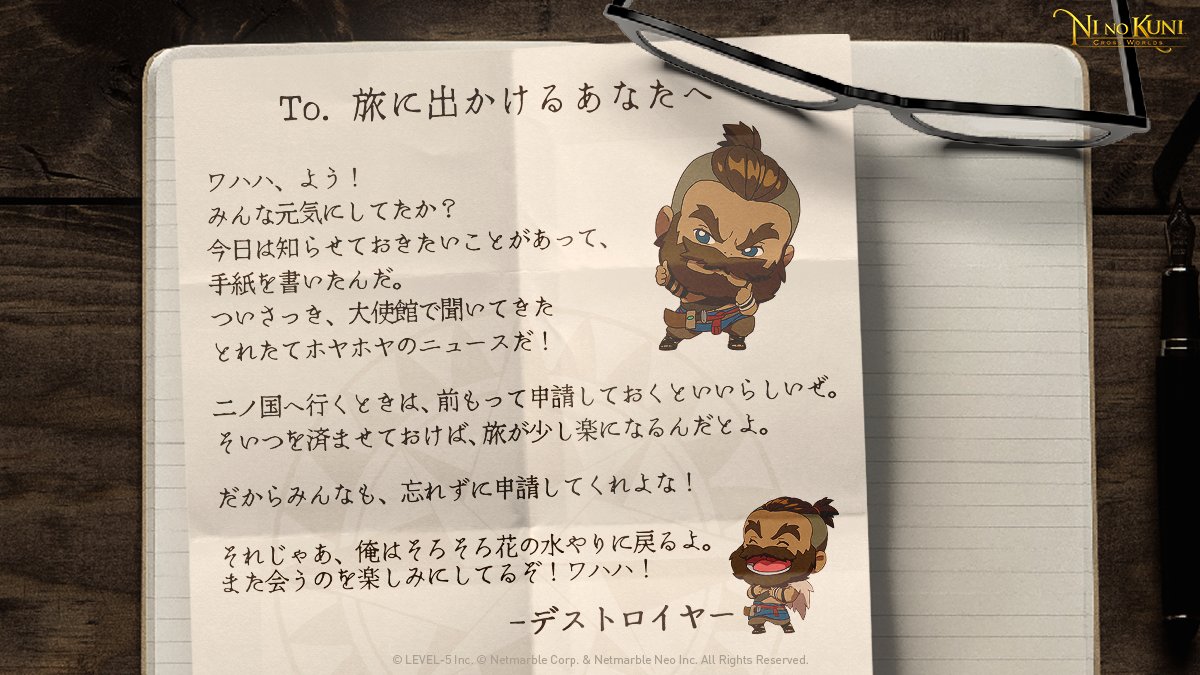 NI NO KUNI
CROSS WORLDS
To. 旅に出かけるあなたへ
ワハハ、よう！
みんな元気にしてたか？
今日は知らせておきたいことがあって、
手紙を書いたんだ。
ついさっき、大使館で聞いてきた
とれたてホヤホヤのニュースだ！
二ノ国へ行くときは、前もって申請しておくといいらしいぜ。
そいつを済ませておけば、旅が少し楽になるんだとよ。
だからみんなも、忘れずに申請してくれよな！
それじゃあ、俺はそろそろ花の水やりに戻るよ。
また会うのを楽しみにしてるぞ！ワハハ！
–デストロイヤー
© LEVEL-5 Inc. © Netmarble Corp. & Netmarble Neo Inc. All Rights Reserved.